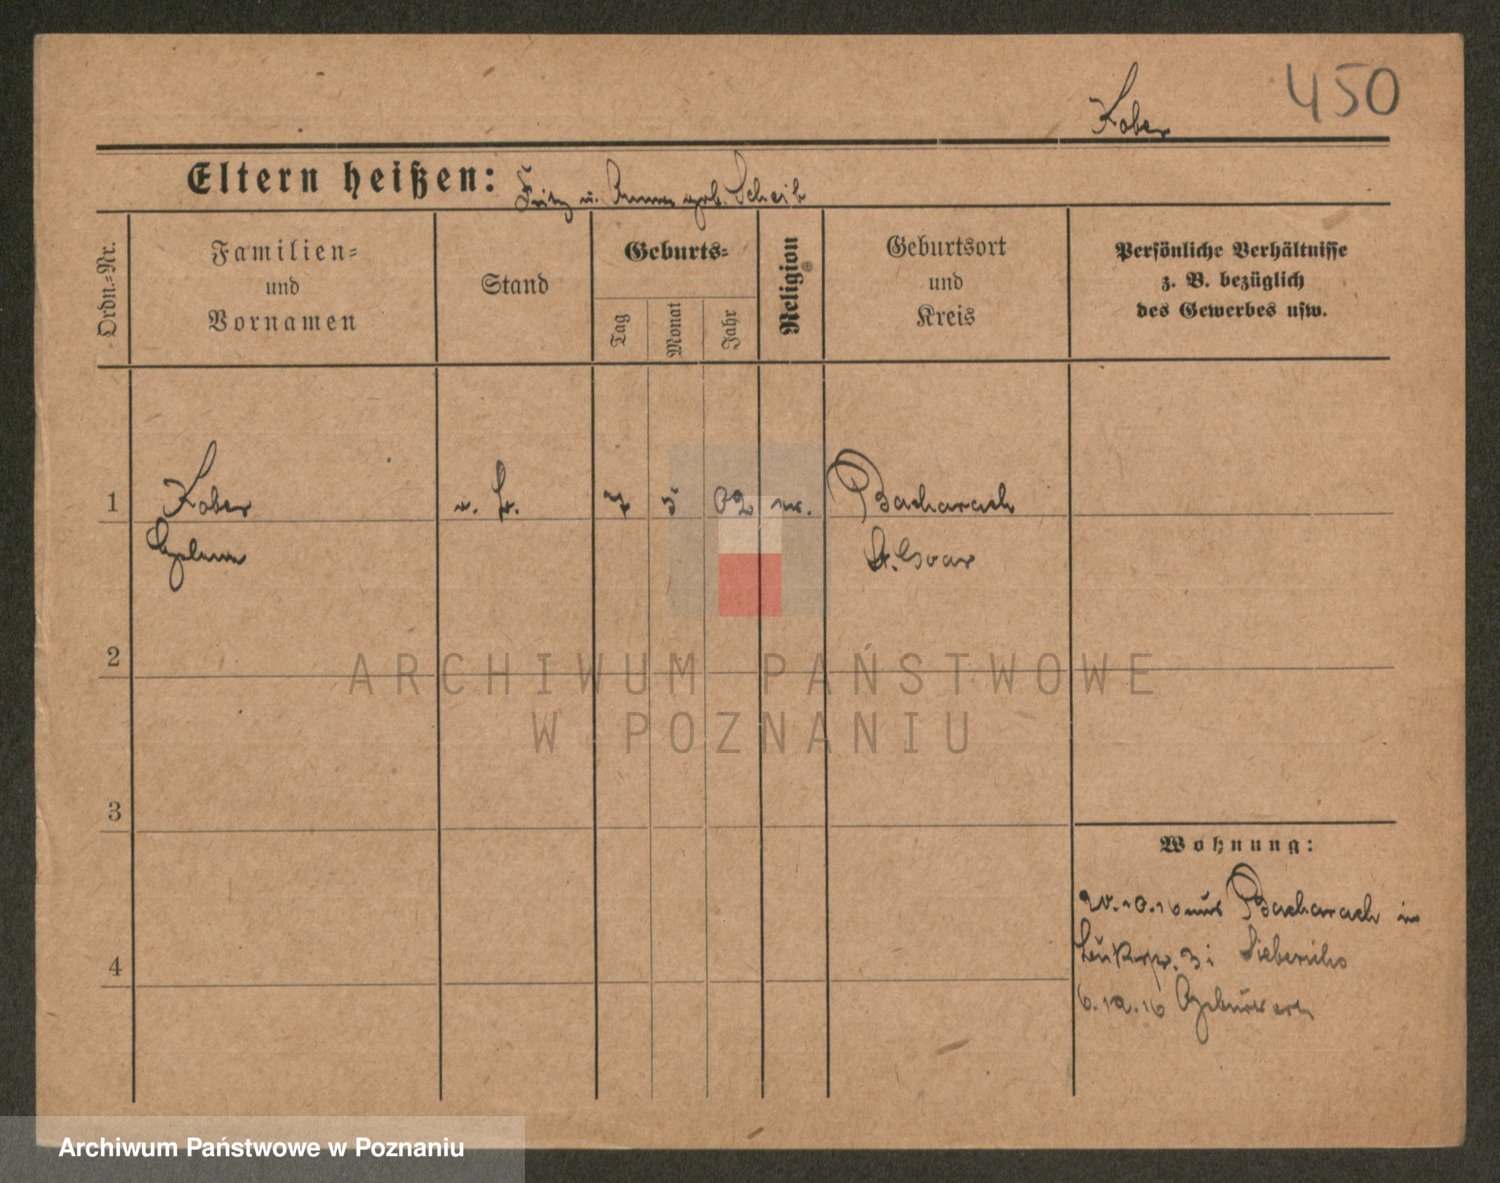 450
Kober
Eltern heißen: Fritz u. Anna geb. Scheib
Ordn.-Nr.
Familien-
und
Vornamen
Stand
Geburts-
Tag
Monat
Jahr
Religion
Geburtsort
und
Kreis
Persönliche Verhältnisse
z. B. bezüglich
des Gewerbes usw.
1 Kober 7 5 02 Bacharach
St. Goar
2
ARCHIWUM PAŃSTWOWE
W POZNANIU
3
Wohnung:
10.16 aus Bacharach in
4
6.12.16
Archiwum Państwowe w Poznaniu